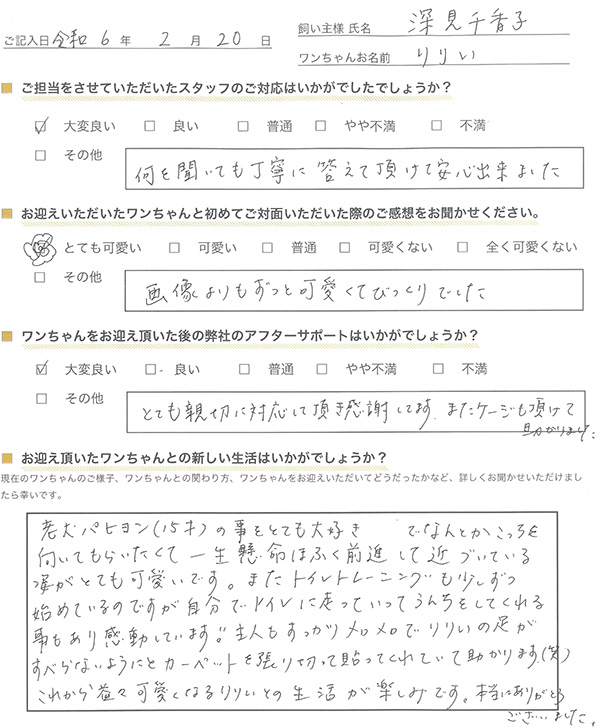 ご記入日 令和 6 年 2 月 20 日
飼い主様 氏名 深見千香子
ワンちゃんお名前 りりい
■ ご担当をさせていただいたスタッフのご対応はいかがでしたでしょうか？
☑ 大変良い □ 良い □ 普通 □ やや不満 □ 不満
□ その他 何を聞いても丁寧に答えて頂けて安心出来ました
■ お迎えいただいたワンちゃんと初めてご対面いただいた際のご感想をお聞かせください。
とても可愛い □ 可愛い □ 普通 □ 可愛くない □ 全く可愛くない
□ その他 画像よりもずっと可愛くてびっくりでした
■ ワンちゃんをお迎え頂いた後の弊社のアフターサポートはいかがでしょうか？
☑ 大変良い □ 良い □ 普通 □ やや不満 □ 不満
□ その他 とても親切に対応して頂き感謝してます。またケージも頂けて
助かりました。
■ お迎え頂いたワンちゃんとの新しい生活はいかがでしょうか？
現在のワンちゃんのご様子、ワンちゃんとの関わり方、ワンちゃんをお迎えいただいてどうだったかなど、詳しくお聞かせいただけまし
たら幸いです。
老犬パピヨン(15才)の事をとても大好き でなんとかこっちを
向いてもらいたくて一生懸命ほふく前進して近づいている
姿がとても可愛いです。またトイレトレーニングも少しずつ
始めているのですが自分でトイレに走っていってうんちをしてくれる
事もあり感動しています!! 主人もすっかりメロメロでりりいの足が
すべらないようにとカーペットを張り切って貼ってくれていて助かります(笑)
これから益々可愛くなるりりいとの生活が楽しみです。本当にありがとう
ございました。